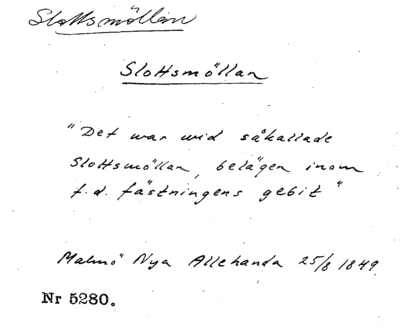 Slottsmöllan
Slottsmöllan
"Det war wid såkallade
Slottsmöllan, belägen inom
f.d. fästningens gebit"
Malmö Nya Allehanda 25/8 1849.
Nr 5280.